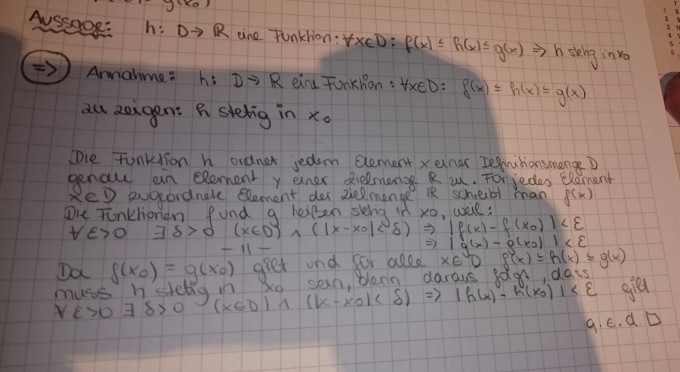 g(x₀)
Aussage: h: D → ℝ eine Funktion: ∀x∈D: f(x) ≤ h(x) ≤ g(x) ⇒ h stetig in x₀
⇒ Annahme: h: D → ℝ eine Funktion: ∀x∈D: f(x) ≤ h(x) ≤ g(x)
zu zeigen: h stetig in x₀
Die Funktion h ordnet jedem Element x einer Definitionsmenge D
genau ein Element y einer Zielmenge ℝ zu. Für jedes Element
x∈D zugeordnete Element der Zielmenge ℝ schreibt man f(x)
Die Funktionen f und g heißen stetig in x₀, weil:
∀ε>0 ∃δ>0 (x∈D) ∧ (|x-x₀|<δ) ⇒ |f(x)-f(x₀)|<ε
-||- ⇒ |g(x)-g(x₀)|<ε
Da f(x₀) = g(x₀) gilt und für alle x∈D f(x) ≤ h(x) ≤ g(x)
muss h stetig in x₀ sein, denn daraus folgt, dass
∀ε>0 ∃δ>0 (x∈D) ∧ (|x-x₀|<δ) ⇒ |h(x)-h(x₀)|<ε gilt
q.e.d □